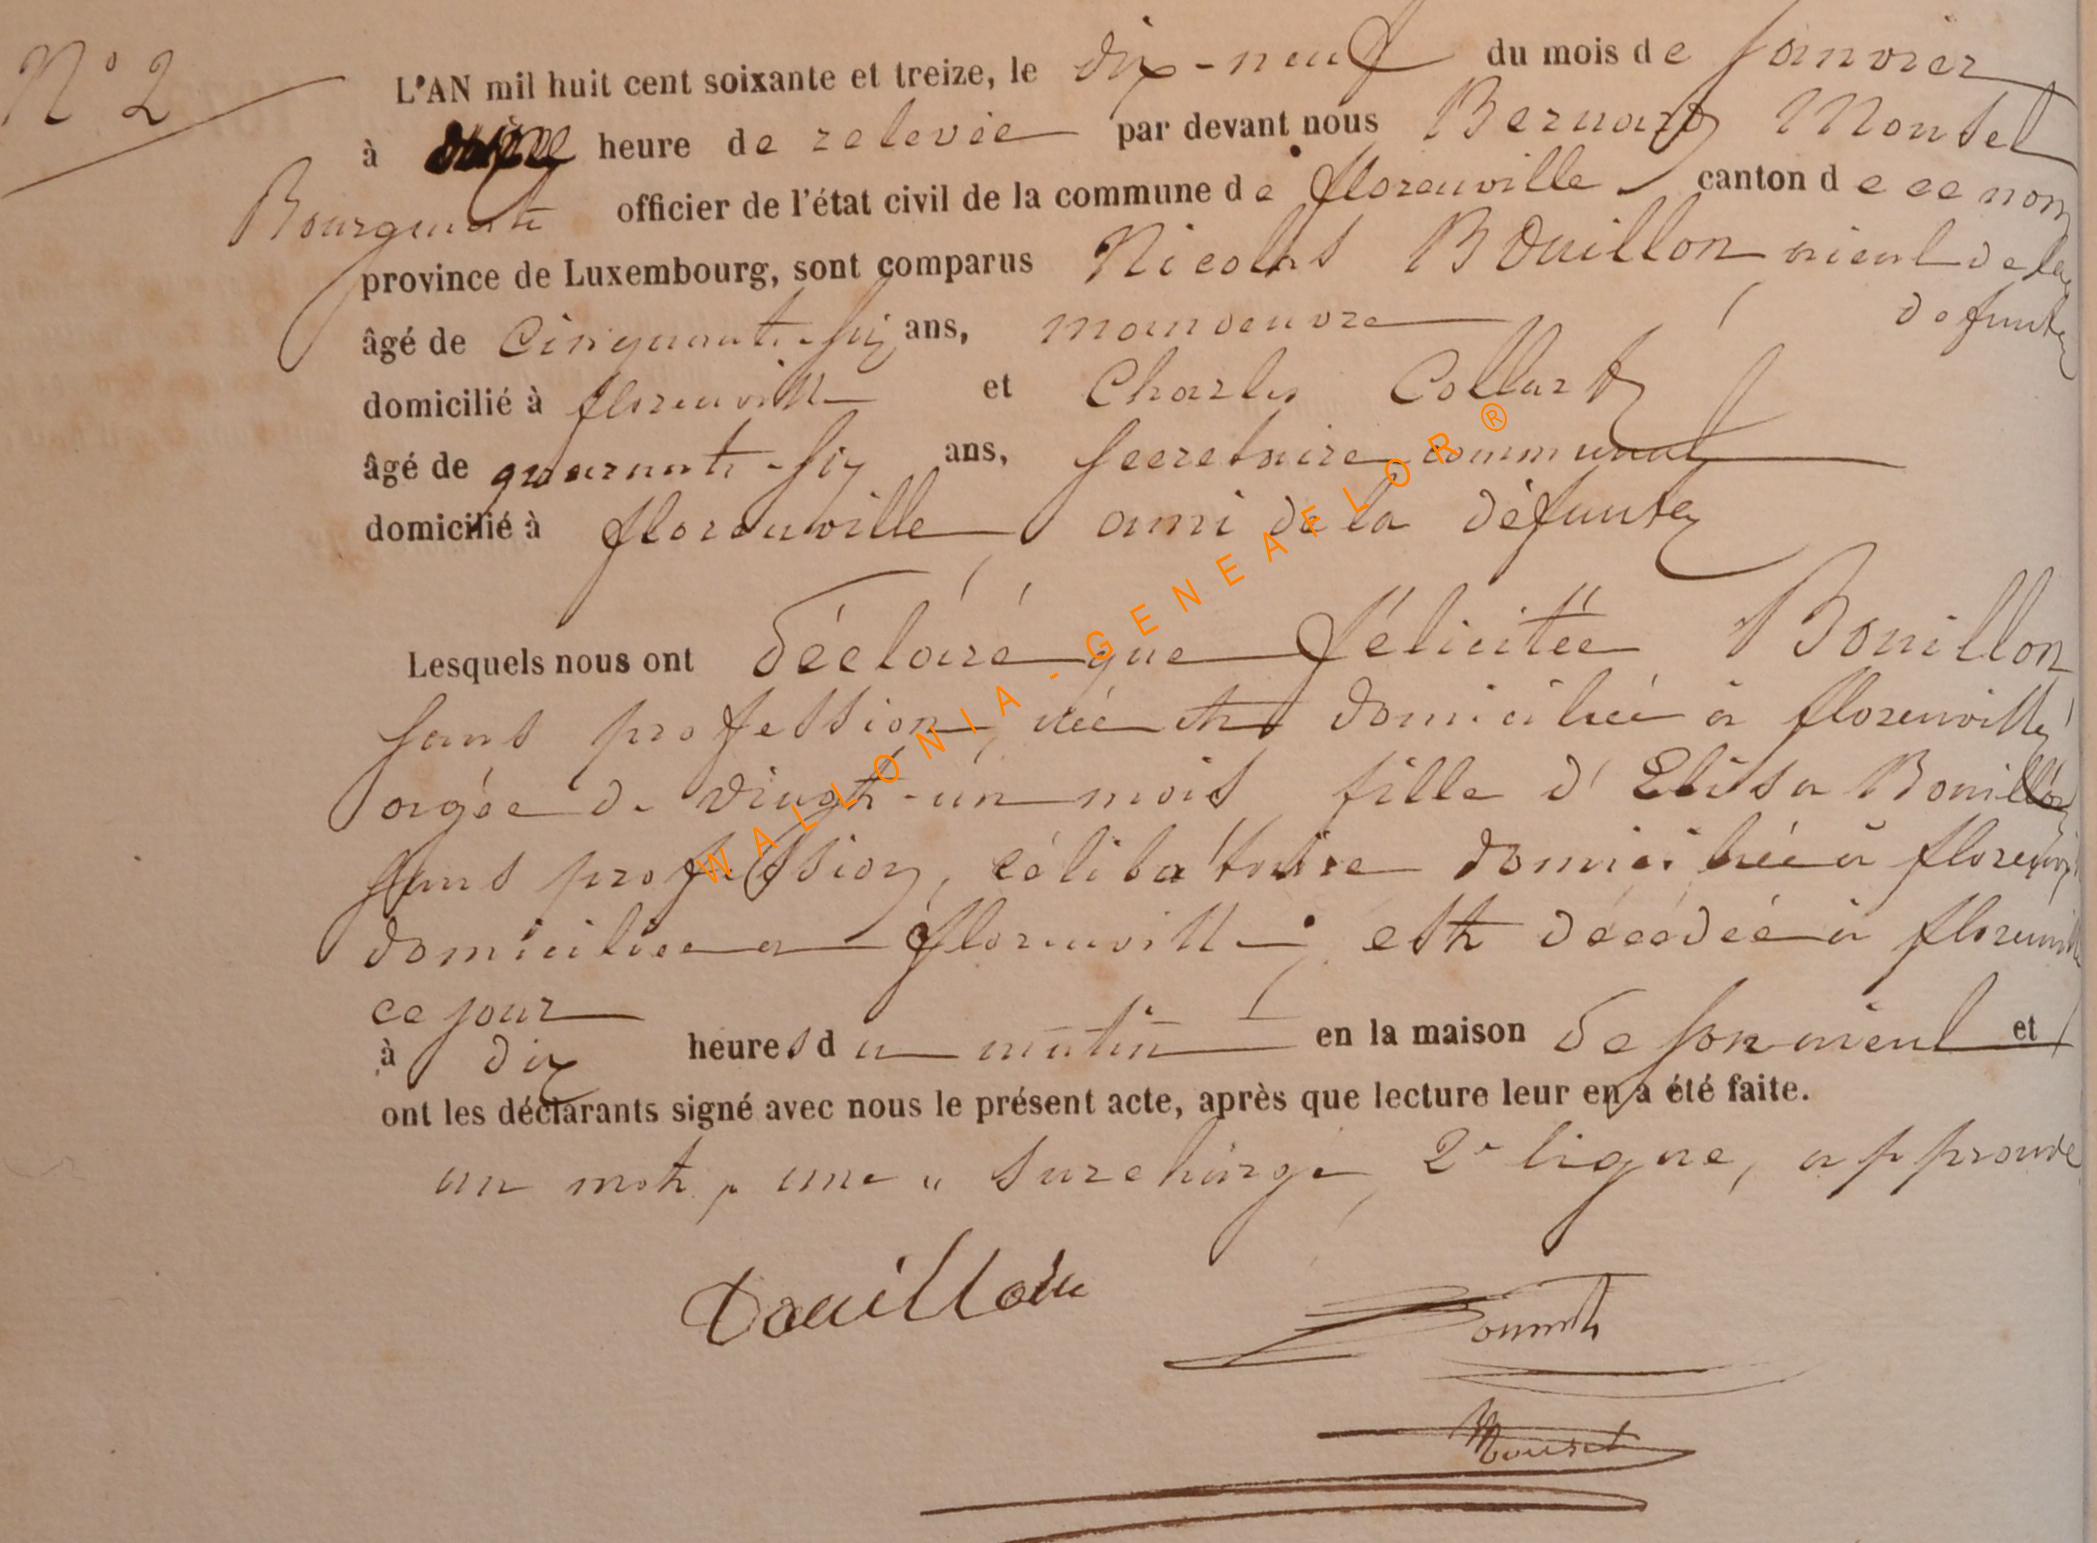 N° 2
L'AN mil huit cent soixante et treize, le dix-neuf du mois de Janvier
à une heure de relevée par devant nous Bernard Mousel
Bourgmestre officier de l'état civil de la commune de florenville canton de ce nom
province de Luxembourg, sont comparus Nicolas Bouillon aieul de la
défunte
âgé de Cinquante-six ans, manoeuvre
domicilié à florenville et Charles Collart
âgé de quarante-six ans, secretaire communal
domicilié à florenville ami de la défunte
Lesquels nous ont déclaré que félicitée Bouillon
sans profession, née et domiciliée à florenville
agée de vingt-un mois, fille d'Elisa Bouillon
sans profession, célibataire domiciliée à florenville
domiciliée a florenville; est décédée à florenville
ce jour
à dix heures du matin en la maison de son aieul et
ont les déclarants signé avec nous le présent acte, après que lecture leur en a été faite.
un mot, une " surchargé, 2e ligne, approuvé
Bouillon
WALLONIA-GENEAFLOR®